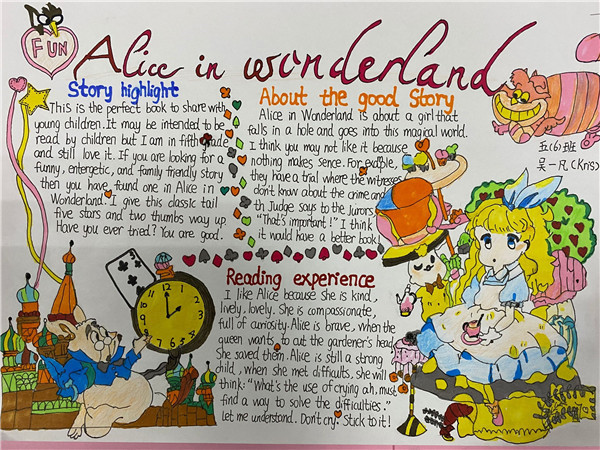 FUN
Alice in wonderland
Story highlight
This is the perfect book to share with
young children. It may be intended to be
read by children but I am in fifth grade
and still love it. If you are looking for a
funny, entergetic, and family friendly story
then you have found one in Alice in
Wonderland. I give this classic tail
five stars and two thumbs way up.
Have you ever tried? You are good.
About the good Story
Alice in Wonderland is about a girl that
falls in a hole and goes into this magical world.
I think you may not like it because
nothing makes sence. For example,
they have a trial where the witnesses
don't know about the crime and
th Judge says to the Jurors,
"That's important!" I think
it would have a better book!
五(6)班
吴一凡(Kris)
Reading experience
I like Alice because She is kind,
lively, lovely. She is compassionate,
full of curiosity. Alice is brave, when the
queen wants to cut the gardener's head,
She saved them. Alice is still a strong
child, when she met difficults, she will
think: "What's the use of crying ah, must
find a way to solve the difficulties."
Let me understand. Don't cry. Stick to it!